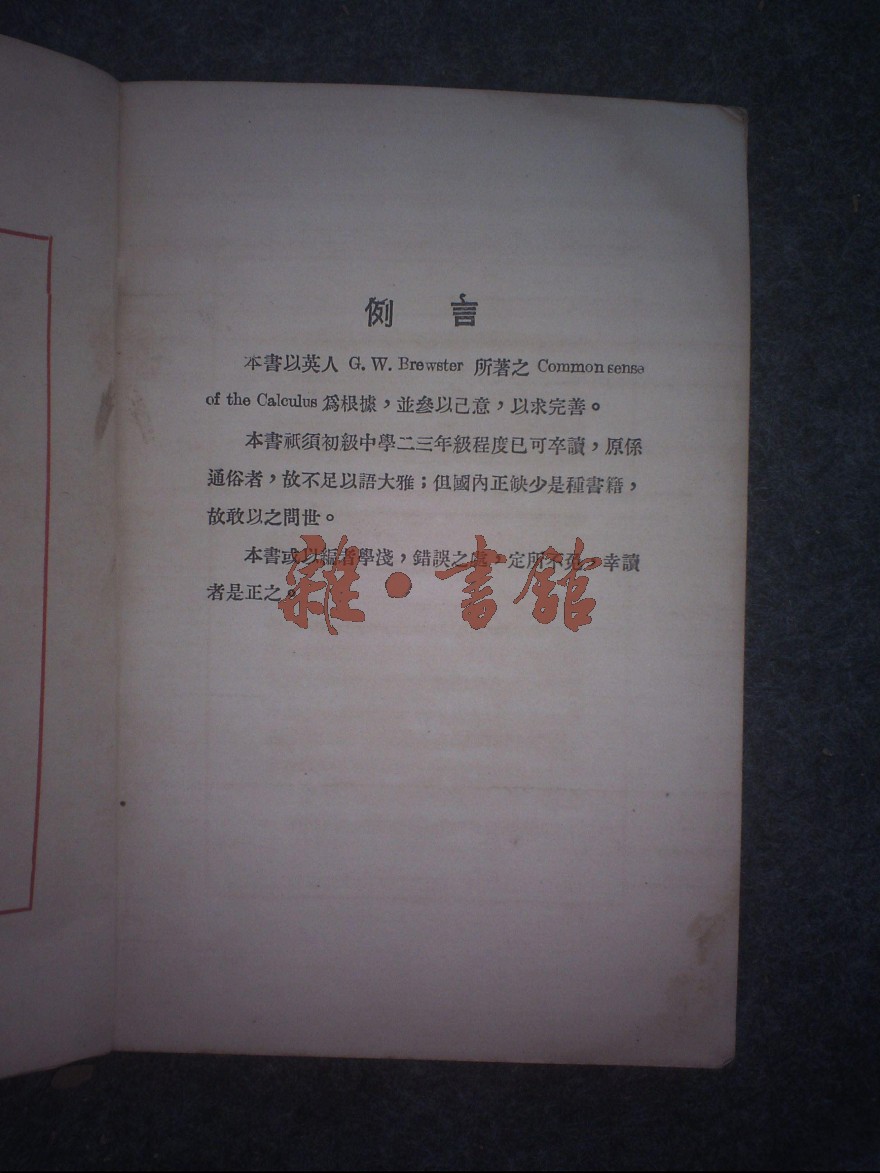 例言
本書以英人 G. W. Brewster 所著之 Common sense
of the Calculus 爲根據，並參以己意，以求完善。
本書祇須初級中學二三年級程度已可卒讀，原係
通俗者，故不足以語大雅；但國內正缺少是種書籍，
故敢以之問世。
本書或以編者學淺，錯誤之處，定所不免，幸讀
者是正之。
雜·書館